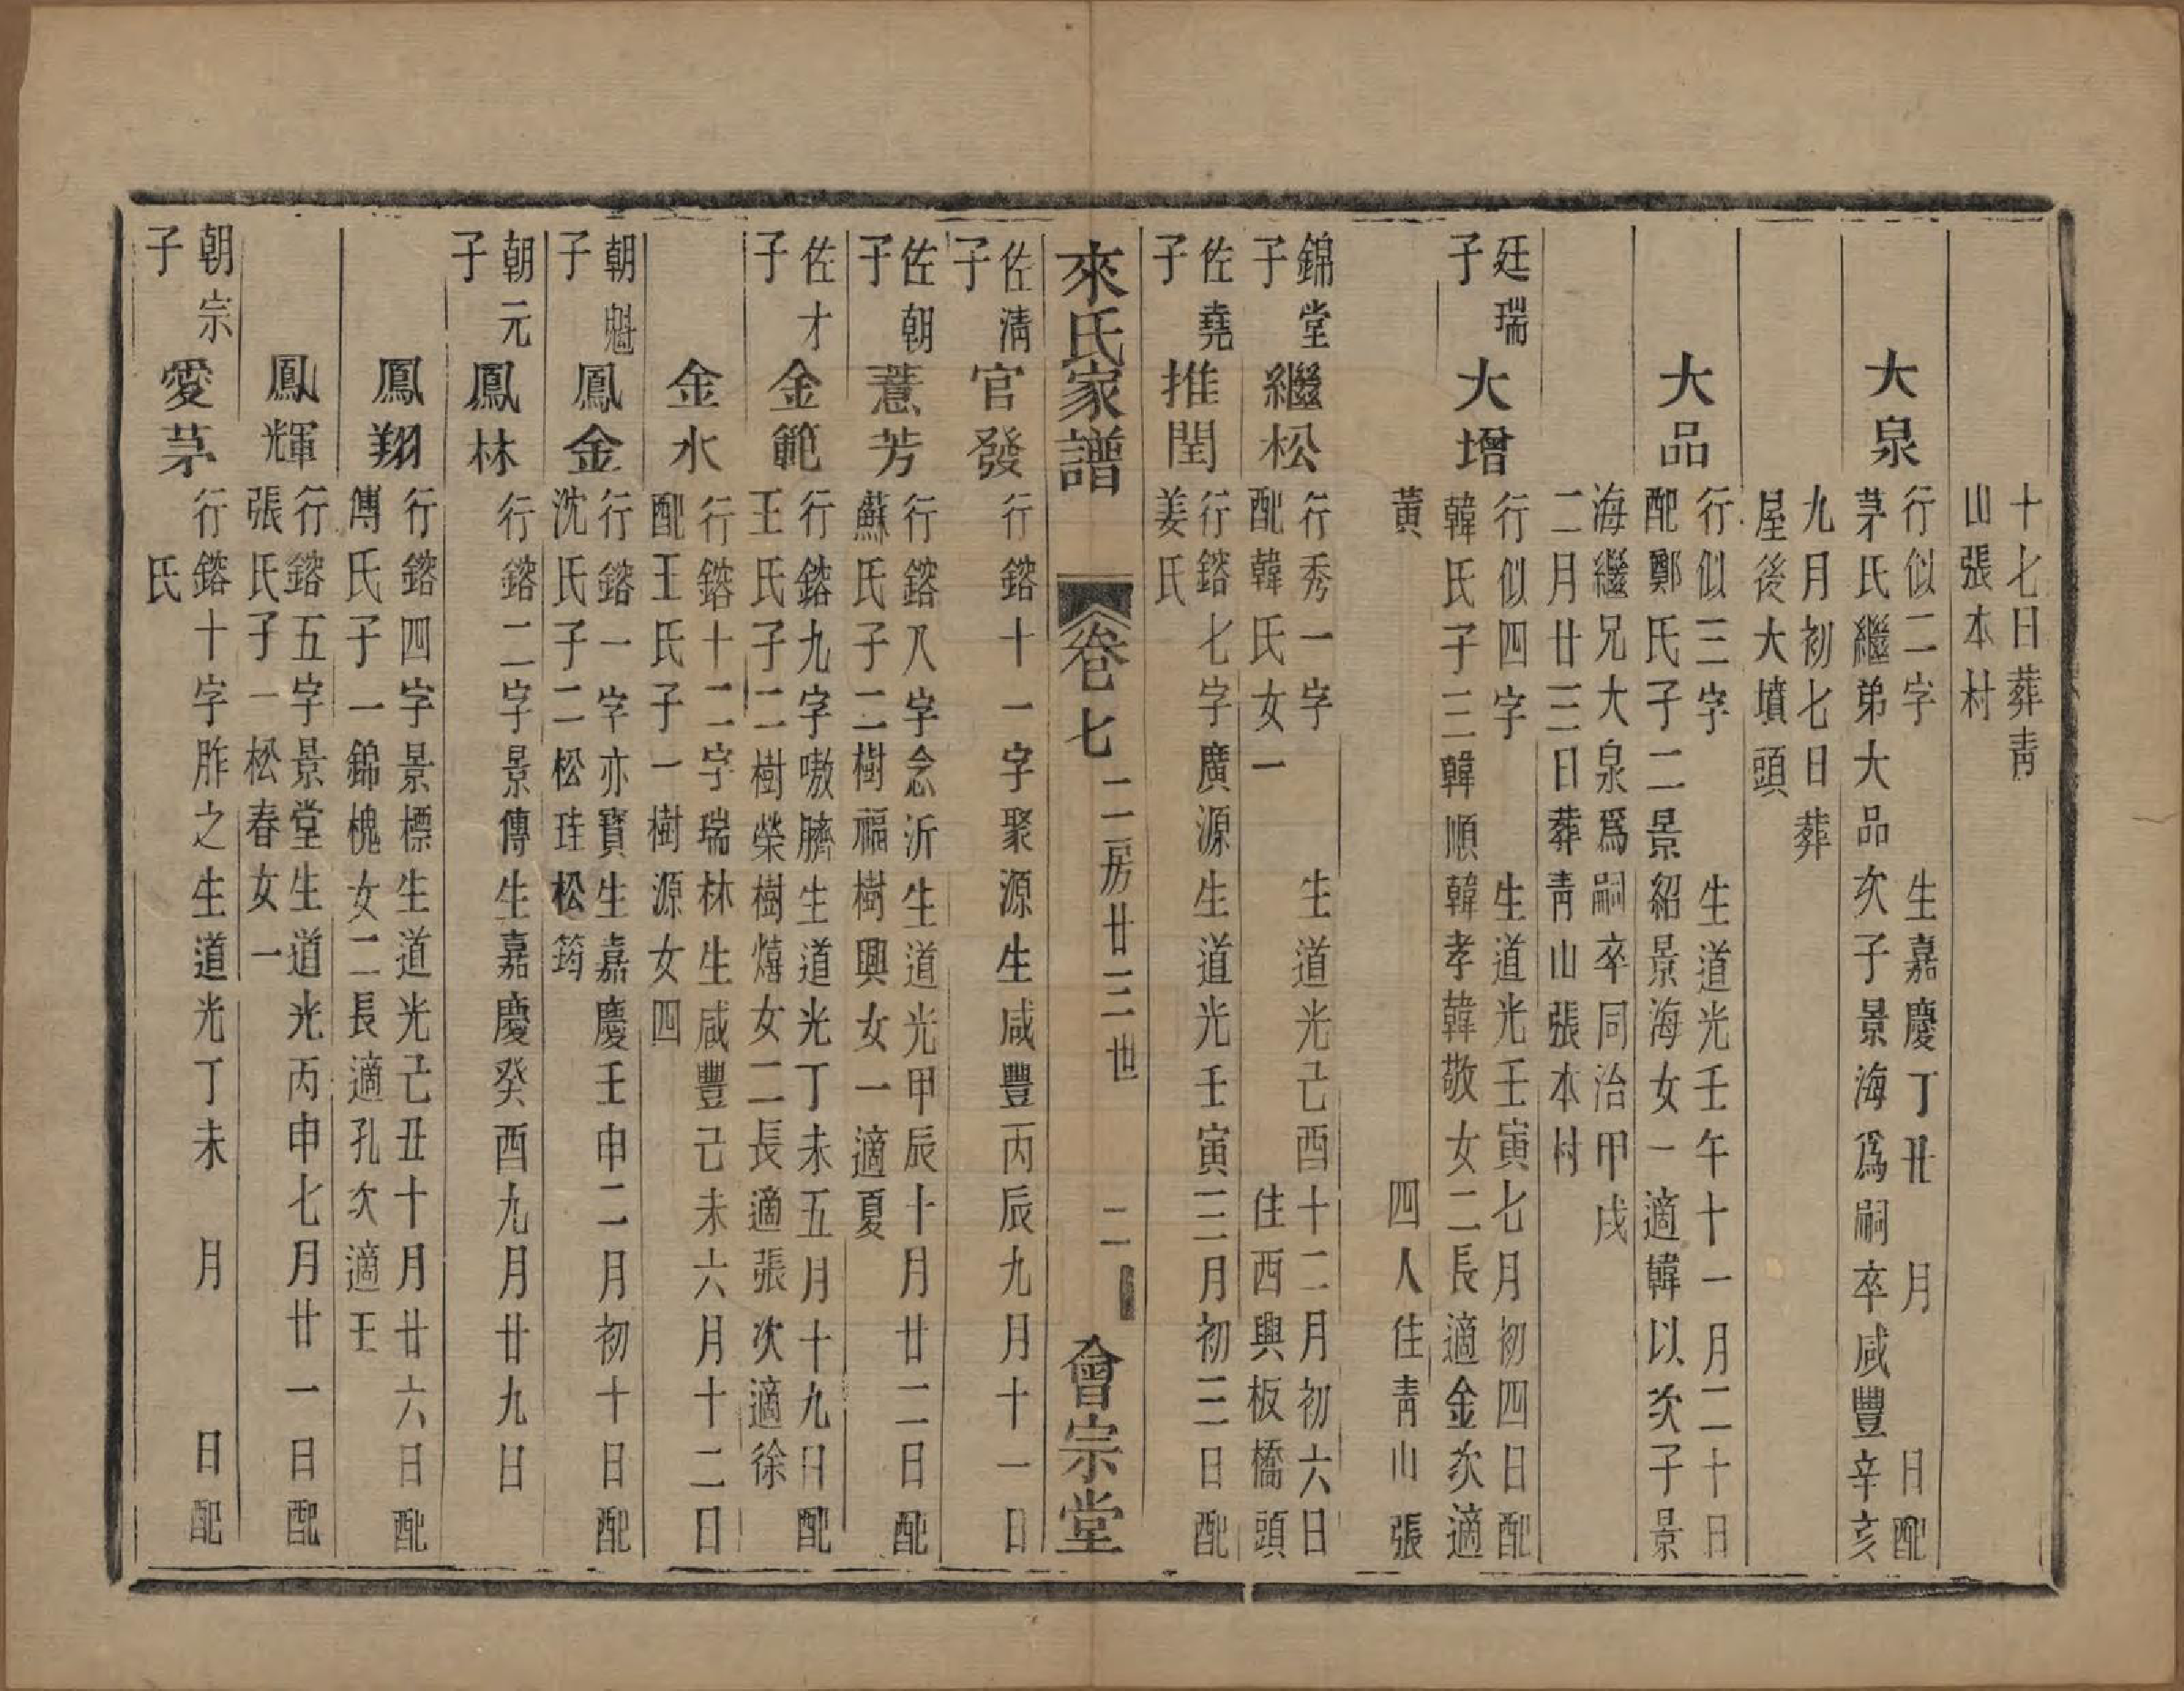 十七日葬青
山張本村
大泉
行似二字　生嘉慶丁丑　月　日配
茅氏繼弟大品次子景海爲嗣卒咸豐辛亥
九月初七日葬
屋後大墳頭
大品
行似三字　生道光壬午十一月二十日
配鄭氏子二景紹景海女一適韓以次子景
海繼兄大泉爲嗣卒同治甲戌
二月廿三日葬青山張本村
廷瑞
子
大增
行似四字　生道光壬寅七月初四日配
韓氏子三韓順韓孝韓敬女二長適金次適
黃　四人住青山張
錦堂
子
繼松
行秀一字　生道光己酉十二月初六日
配韓氏女一　住西興板橋頭
佐堯
子
推閏
行鎔七字廣源生道光壬寅三月初三日配
姜氏
來氏家譜　卷七　二房廿三世　二　會宗堂
佐清
子
官發
行鎔十一字聚源生咸豐丙辰九月十一日
佐朝
子
薏芳
行鎔八字念沂生道光甲辰十月廿二日配
蘇氏子二樹福樹興女一適夏
佐才
子
金範
行鎔九字嗷臍生道光丁未五月十九日配
王氏子二樹榮樹熺女二長適張次適徐
金水
行鎔十二字瑞林生咸豐己未六月十二日
配王氏子一樹源女四
朝魁
子
鳳金
行鎔一字亦寶生嘉慶壬申二月初十日配
沈氏子二松珪松筠
朝元
子
鳳林
行鎔二字景傳生嘉慶癸酉九月廿九日
鳳翔
行鎔四字景標生道光己丑十月廿六日配
傅氏子一錦槐女二長適孔次適王
鳳輝
行鎔五字景堂生道光丙申七月廿一日配
張氏子一松春女一
朝宗
子
愛茅
行鎔十字胙之生道光丁未　月　日配
氏